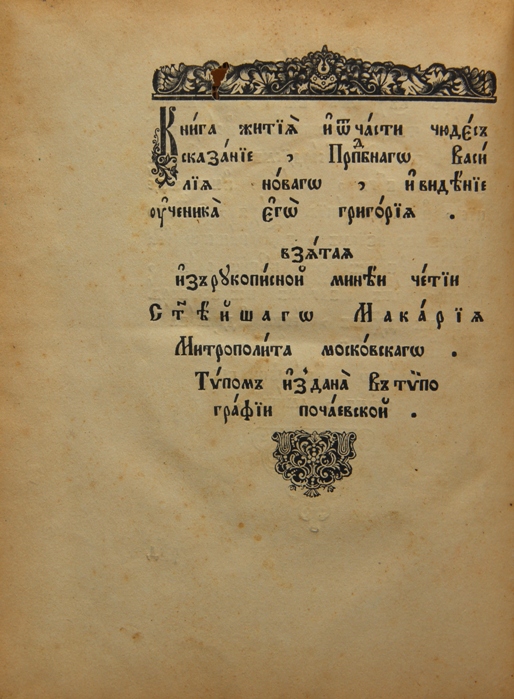 Кни́га житїѧ̀ и҆ѿча́сти чюде́съ
сказа́нїе , Прпⷣбнагѡ Васи́
лїѧ но́вагѡ , и҆виде́нїе
ᲂу҆ченика̀ є҆гѡ̀ григо́рїѧ .
взѧ́таѧ
и҆зърꙋкопи́сной мине́и че́тїи
Ст҃ѣ́йшагѡ Мака́рїѧ
Митрополи́та моско́вскагѡ .
Тѵ́помъ и҆́здана̀ Въ тѷпо
гра́фїи поча́евской .